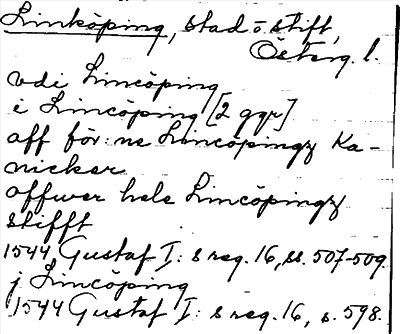 Linköping, stad o. stift,
Österg. l.
vdi Lincöping
i Lincöping [2 ggr]
aff för:ne Lincöpingz Ka-
nicker
offwer hele Lincöpingz
stifft
1544 Gustaf I:s reg. 16, ss. 507-509.
j Lincöping
1544 Gustaf I:s reg. 16, s. 598.